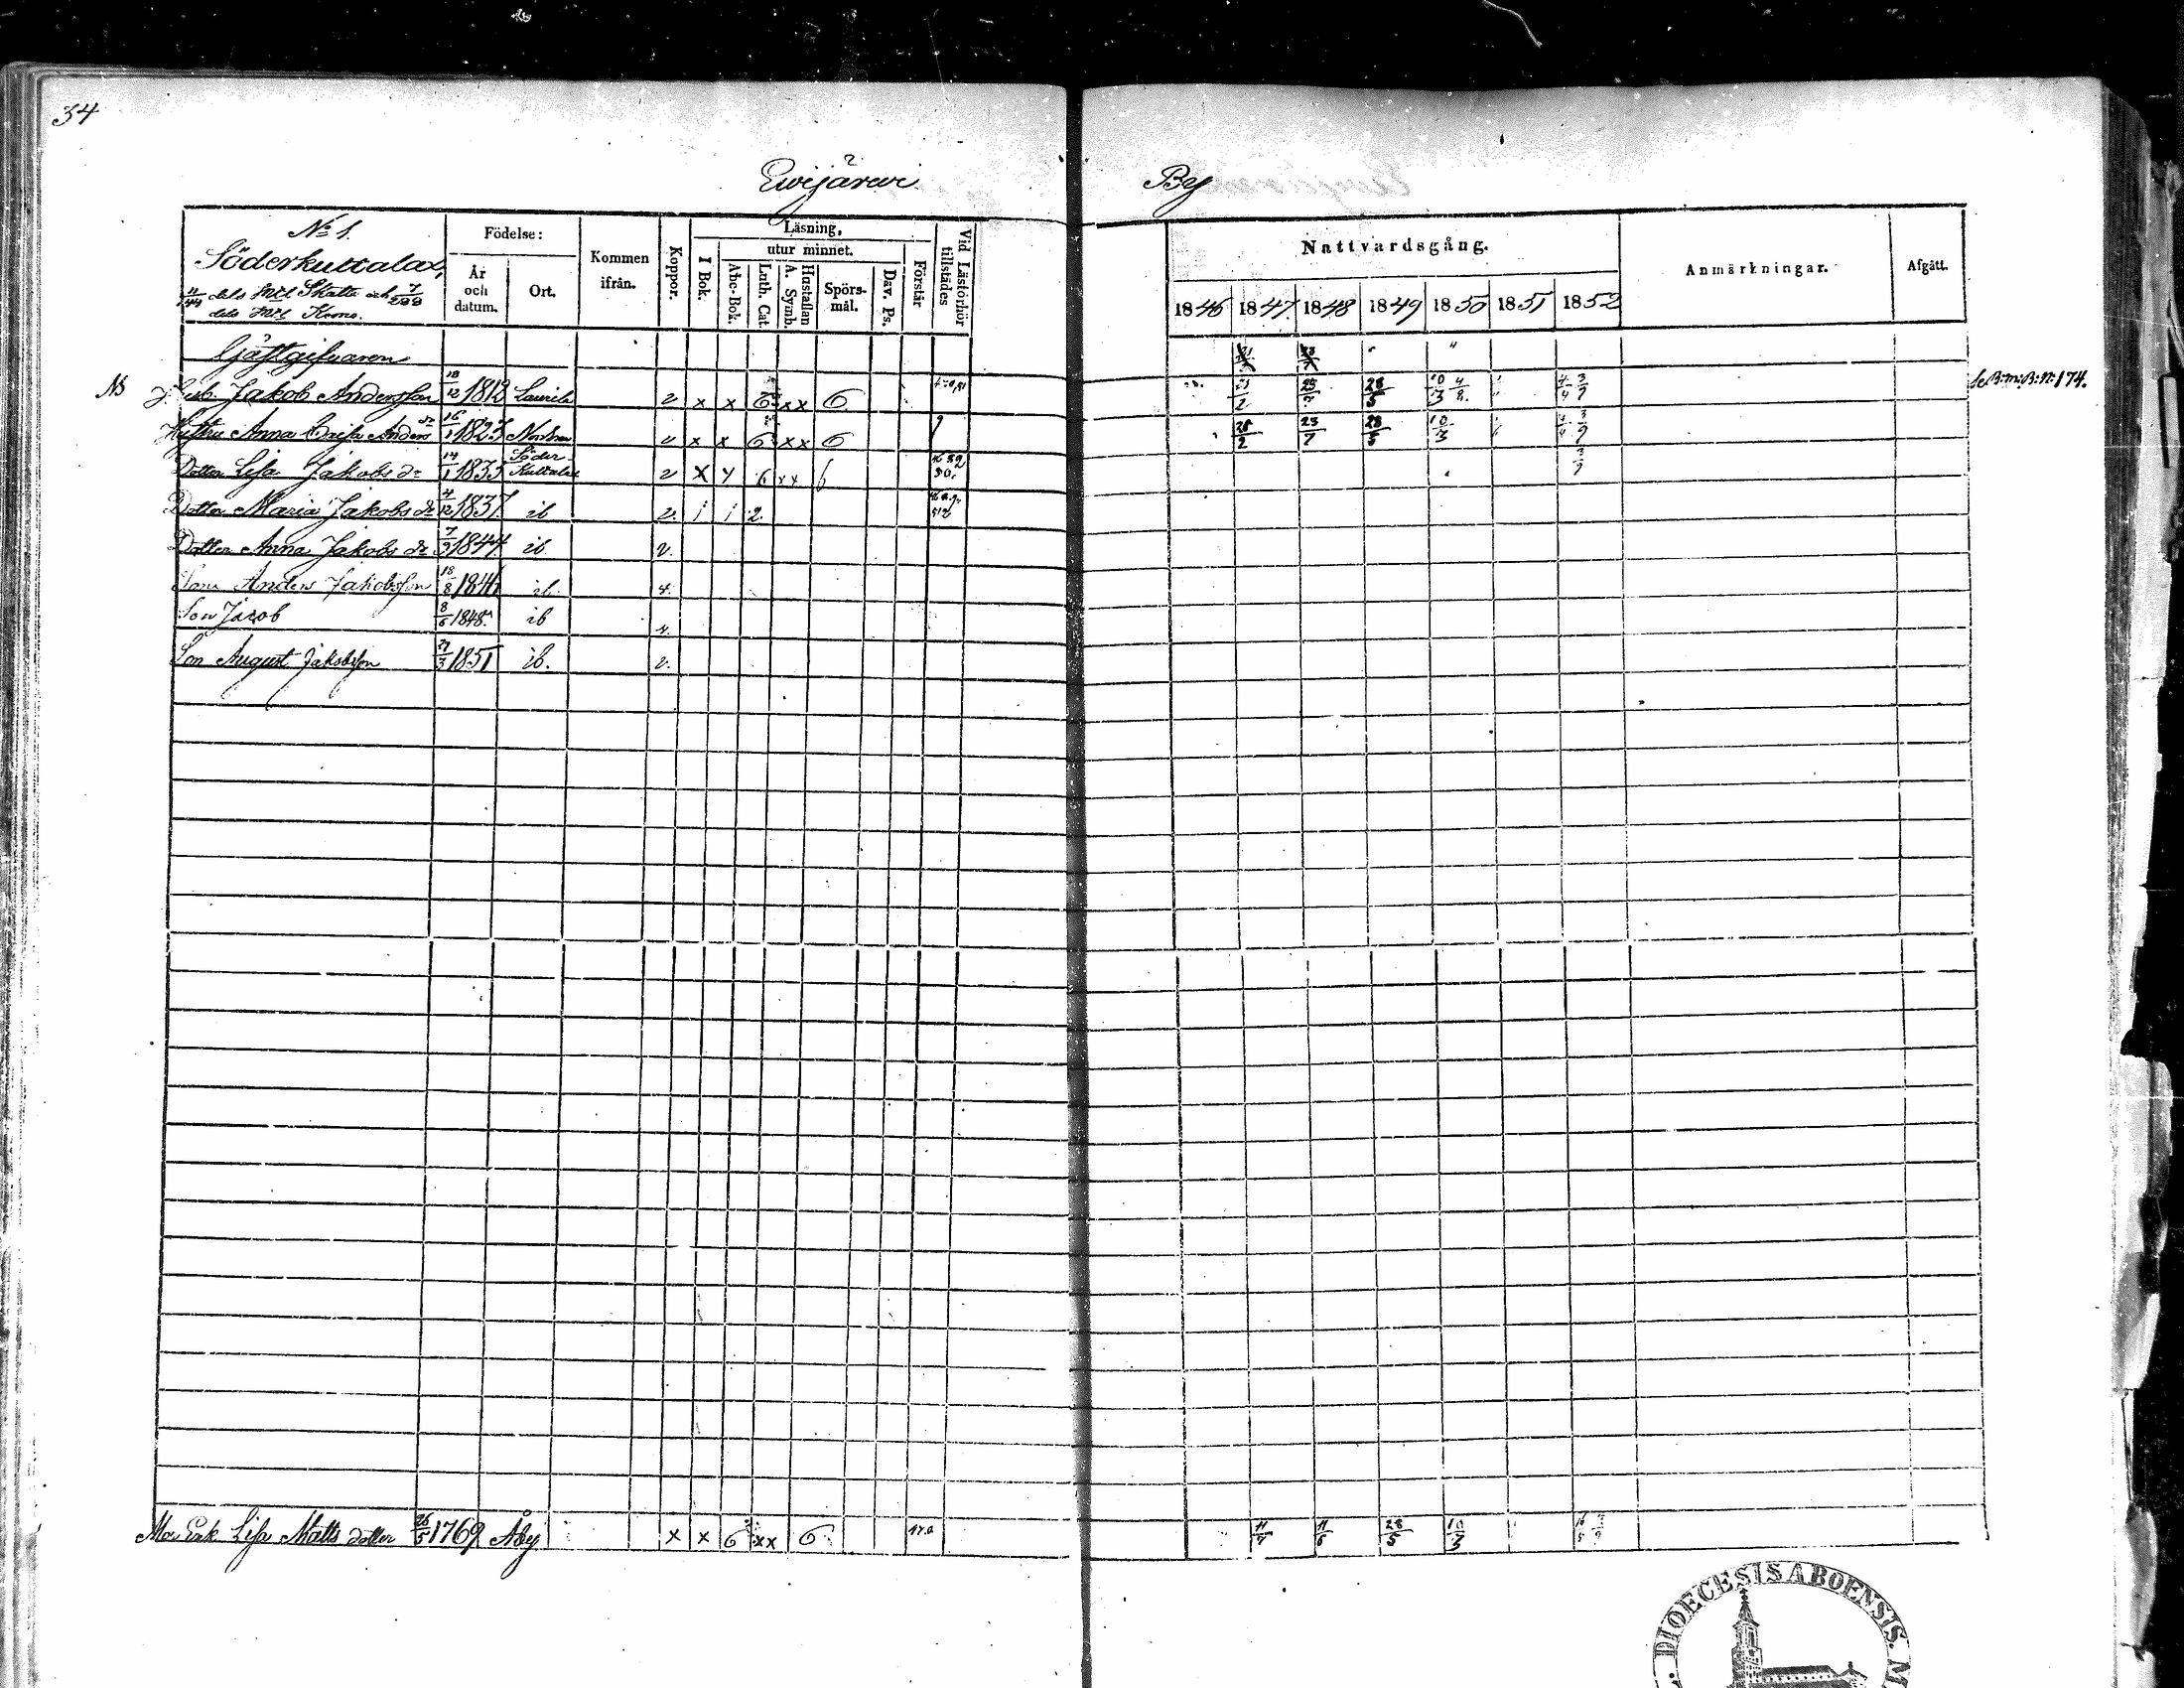 34
Ewijärwi
By
No 1.
Söderkuttalax,
11/144 dels Mtl Skatte och 7/288
dels Mtl Krono.
Födelse:
År och datum.
Ort.
Kommen ifrån.
Koppor.
Läsning,
I Bok.
utur minnet.
Abc-Bok.
Luth. Cat.
Hustaflan A. Symb.
Spörs-mål.
Dav. Ps.
Förstår
Vid Läsförhör tillstädes
Nattvardsgång.
1846 1847 1848 1849 1850 1851 1852
Anmärkningar.
Afgått.
Gästgifvaren
Jakob Andersson 18/12 1812 Laurila v x x 6 xx 6 25/7 28/5 4/4 3/9 174.
Hustru Anna Caisa Anders dr 16/1 1823 v x x 6 xx 6 28/2 23/7 28/5 10/3 4/4 3/9
Dotter Lisa Jakobs dr 14/1 1835 Söder Kuttalax v x y 6 xx 6 3/9
Dotter Maria Jakobs dr 4/12 1837. ib v. i i 2
Dotter Anna Jakobs dr 7/3 1844. ib v.
Son Anders Jakobsson 18/8 1846 ib. v.
Son Jacob 8/6 1848. ib v.
Son August Jakobsson 27/3 1851 ib. v.
Mor Enk. Lisa Matts dotter 26/5 1769 Åby x x 6 xx 6 11/7 11/6 28/5 10/3
DIOECESIS ABOENSIS. M